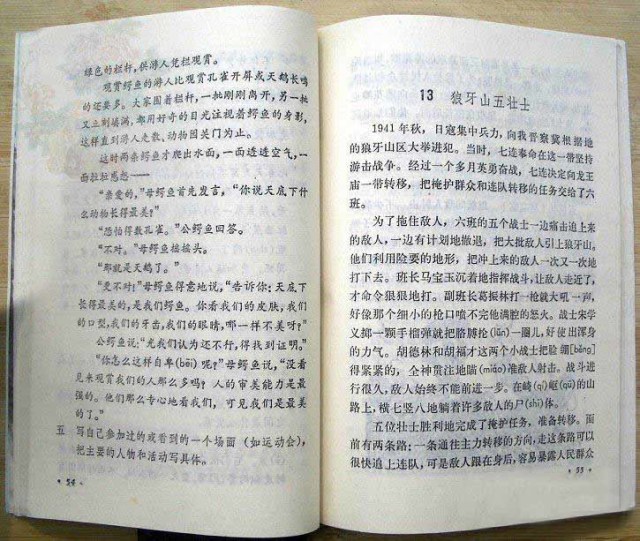 绿色的栏杆，供游人凭栏观赏。
观赏鳄鱼的游人比观赏孔雀开屏或天鹅长鸣
的还要多。大家围着栏杆，一批刚刚离开，另一批
又立刻填满，都用好奇的目光注视着鳄鱼的身影，
这样直到游人走散、动物园关门为止。
这时两条鳄鱼才爬出水面，一面透透空气，一
面拉拉感想——
“亲爱的，”母鳄鱼首先发言，“你说天底下什
么动物长得最美？”
“恐怕得数孔雀。”公鳄鱼回答。
“不对。”母鳄鱼摇摇头。
“那就是天鹅了。”
“更不对！”母鳄鱼得意地说，“告诉你：天底下
长得最美的，是我们鳄鱼。你看我们的皮肤，我们
的口型，我们的牙齿，我们的眼睛，哪一样不美呀？”
公鳄鱼说：“光我们认为还不行，得找到证明。”
“你怎么这样自卑(bēi)呢？”母鳄鱼说，“没看
见来观赏我们的人那么多吗？人的审美能力是最
强的。他们那么专心地看我们，可见我们是最美
的了。”
五 写自己参加过的或看到的一个场面（如运动会），
把主要的人物和活动写具体。
· 54 ·
13 狼牙山五壮士
1941年秋，日寇集中兵力，向我晋察冀根据地
的狼牙山区大举进犯。当时，七连奉命在这一带坚持
游击战争。经过一个多月英勇奋战，七连决定向龙王
庙一带转移，把掩护群众和连队转移的任务交给了六
班。
为了拖住敌人，六班的五个战士一边痛击追上来
的敌人，一边有计划地撤退，把大批敌人引上狼牙山。
他们利用险要的地形，把冲上来的敌人一次又一次地
打下去。班长马宝玉沉着地指挥战斗，让敌人走近了，
才命令狠狠地打。副班长葛振林打一枪就大吼一声，
好像那个细小的枪口喷不完他满腔的怒火。战士宋学
义掷一颗手榴弹就把胳膊抡(lūn)一圈儿，好使出浑身
的力气。胡德林和胡福才这两个小战士把脸绷[běng]
得紧紧的，全神贯注地瞄(miáo)准敌人射击。战斗进
行很久，敌人始终不能前进一步。在崎(qí)岖(qū)的山
路上，横七竖八地躺着许多敌人的尸(shī)体。
五位壮士胜利地完成了掩护任务，准备转移。面
前有两条路：一条通往主力转移的方向，走这条路可以
很快追上连队，可是敌人跟在身后，容易暴露人民群众
· 55 ·